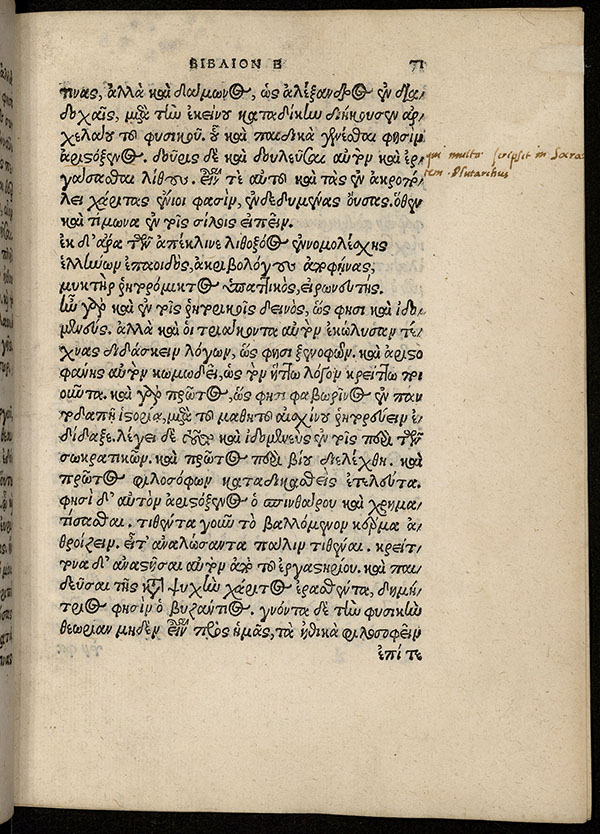 ΒΙΒΛΙΟΝ Β 71
τινας, ἀλλὰ καὶ δαίμωνος, ὡς ἀλέξανδρος ἐν δια/
δοχαῖς, μετὰ τὴν ἐκείνου καταδίκην διήκουσεν ἀρ/
χελάου τοῦ φυσικοῦ. οὗ καὶ παιδικὰ γενέσθαι φησὶν
ἀριστόξενος. δοῦρις δὲ καὶ δουλεῦσαι αὐτὸν καὶ ἐρ/
γάσασθαι λίθους. εἶναί τε αὐτοῦ καὶ τὰς ἐν ἀκροπό/
λει χάριτας ἔνιοι φασὶν, ἐνδεδυμένας οὔσας. ὅθεν
καὶ τίμωνα ἐν τοῖς σίλοις εἰπεῖν.
ἐκ δ' ἄρα τῶν ἀπέκλινε λιθοξόος ἐννομολέσχης
ἑλλήνων ἐπαοιδὸς, ἀκριβολόγους ἀποφήνας,
μυκτὴρ ῥητορόμικτος ὑπαττικὸς, εἰρωνευτής.
ἦν γὰρ καὶ ἐν τοῖς ῥητορικοῖς δεινὸς, ὥς φησι καὶ ἰδο/
μενεύς. ἀλλὰ καὶ οἱ τριάκοντα αὐτὸν ἐκώλυσαν τέ/
χνας διδάσκειν λόγων, ὥς φησι ξενοφῶν. καὶ ἀριστο
φάνης αὐτὸν κωμωδεῖ, ὡς τὸν ἥττω λόγον κρείττω ποι
οῦντα. καὶ γὰρ πρῶτος, ὥς φησι φαβωρῖνος ἐν παν
τοδαπῇ ἱστορίᾳ, μετὰ τοῦ μαθητοῦ αἰσχίνου ῥητορεύειν ἐ/
δίδαξε. λέγει δὲ τοῦτο καὶ ἰδομενεὺς ἐν τοῖς περὶ τῶν
σωκρατικῶν. καὶ πρῶτος περὶ βίου διελέχθη. καὶ
πρῶτος φιλοσόφων καταδικασθεὶς ἐτελεύτα.
φησὶ δ' αὐτὸν ἀριστόξενος ὁ σπινθάρου καὶ χρημα/
τίσασθαι. τιθέντα γοῦν τὸ βαλλόμενον κέρμα ἀ/
θροίζειν. εἶτ' ἀναλώσαντα πάλιν τιθέναι. κρείτ/
τωνα δ' ἀναστῆσαι αὐτὸν ἀπὸ τοῦ ἐργαστηρίου. καὶ παι
δεῦσαι τῆς κατὰ ψυχὴν χάριτος ἐρασθέντα, δημή/
τριος φησὶν ὁ βυζάντιος. γνόντα δὲ τὴν φυσικὴν
θεωρίαν μηδὲν εἶναι πρὸς ἡμᾶς, τὰ ἠθικὰ φιλοσοφεῖν
ἐπί τε
qui multa scripsit in Socra
tem. Plutarchus